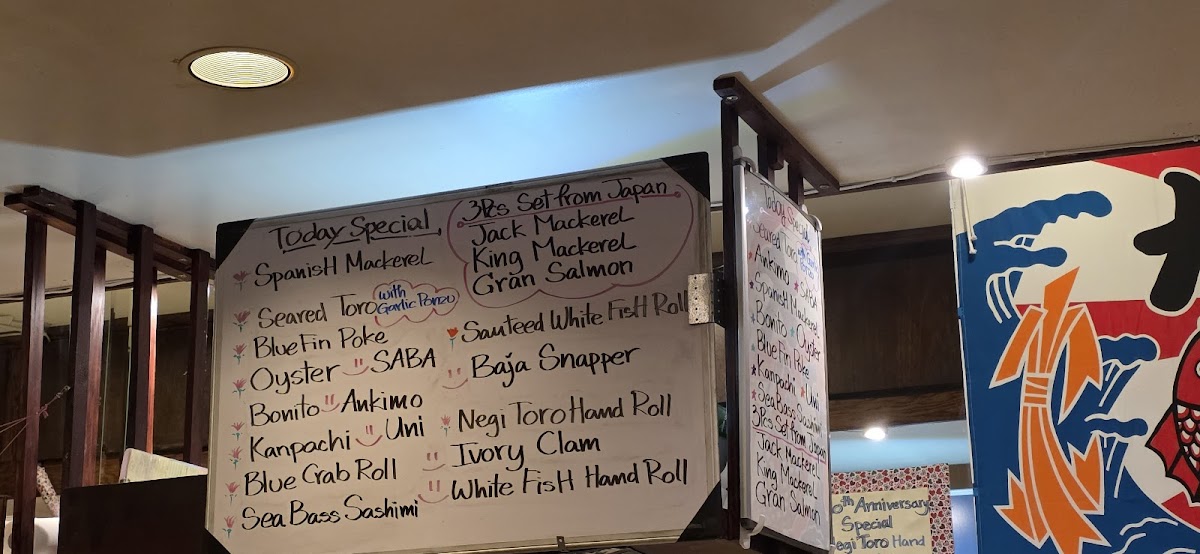 Today Special
SpanisH MackereL
Seared Toro with Garlic Ponzu
BlueFin Poke
Oyster SABA
Bonito Ankimo
Kanpachi Uni
Blue Crab Roll
Sea Bass Sashimi
3Pcs Set from Japan
Jack MackereL
King MackereL
Gran Salmon
Sauteed White FisH Roll
Baja Snapper
Negi Toro Hand Roll
Ivory Clam
White FisH Hand Roll
Today Special
Seared Toro
Ankimo SABA
SpanisH MackereL
Bonito Oyster
BlueFin Poke
Kanpachi Uni
Sea Bass Sashimi
3Pcs Set from Japan
Jack MackereL
King MackereL
Gran Salmon
th Anniversary
Special
Negi Toro Hand